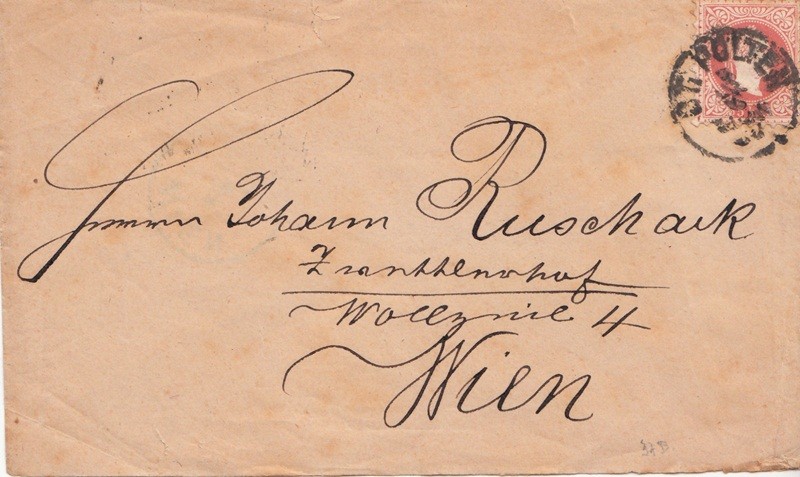 ST. PÖLTEN
Herrn Johann Ruschack
Zwettlerhof
Wollzeile 4
Wien
37B